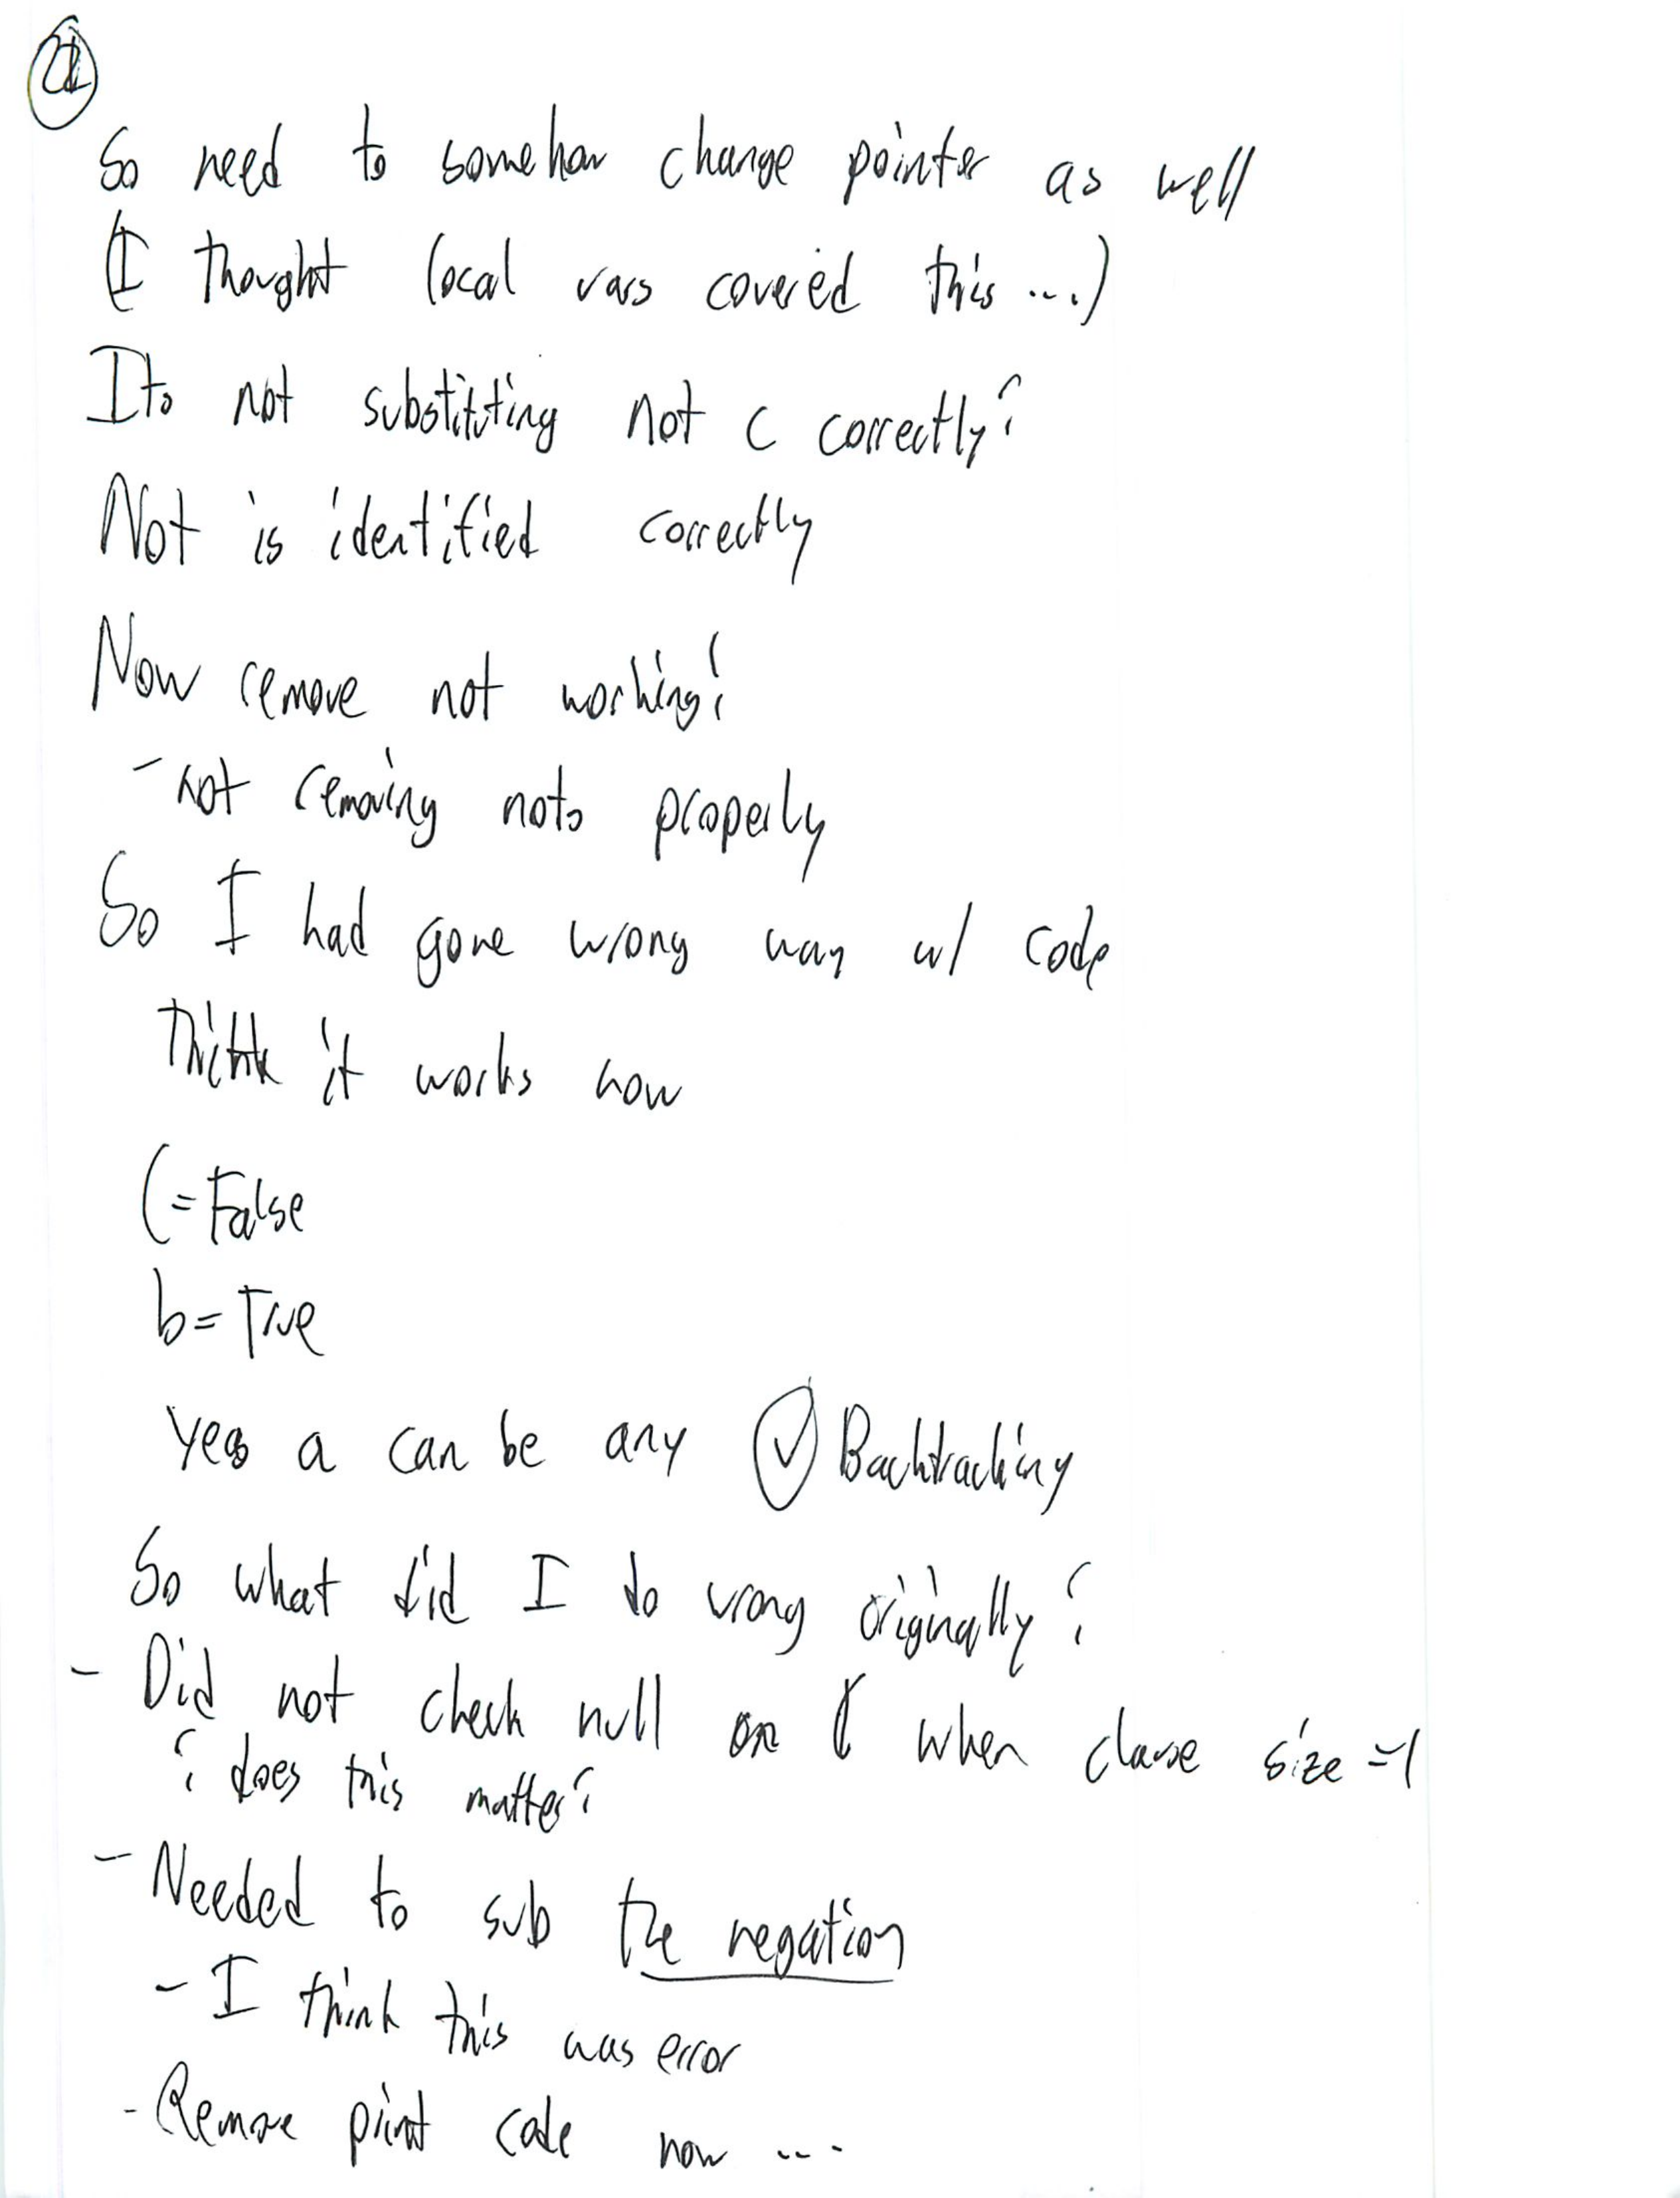 So need to somehow change pointer as well
(I thought local vars covered this ...)
Its not substituting not c correctly?
Not is identified correctly
Now remove not working?
- not removing nots properly
So I had gone wrong way w/ code
Think it works now
C = False
b = True
Yes a can be any ✓ Backtracking
So what did I do wrong originally?
- Did not check null on when clause size = 1
? does this matter?
- Needed to sub the negation
- I think this was error
- Remove print code now ....